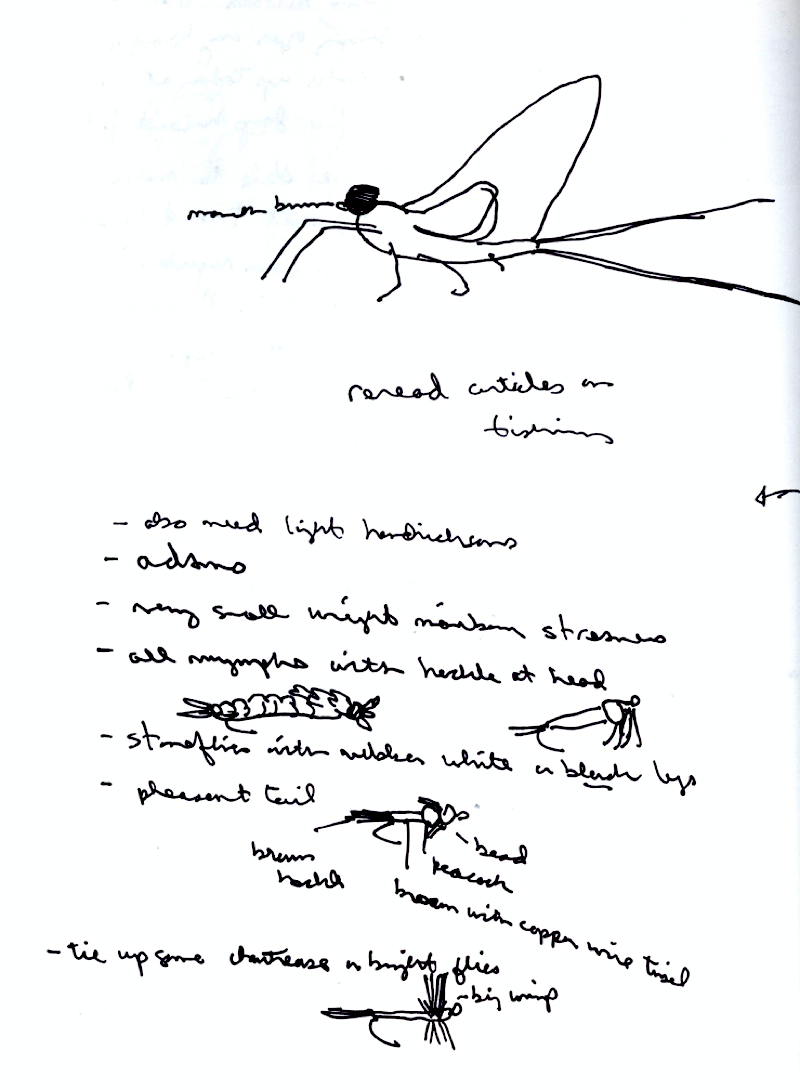 brown
reread articles on
- also need light hendricksons
- adams
- very small
- all nymphs with hackle at head
- stoneflies with rubber white or black legs
- pheasant tail
bead
peacock
brown
hackle
brown with copper wire tinsel
- tie up some or bright flies
- big wing